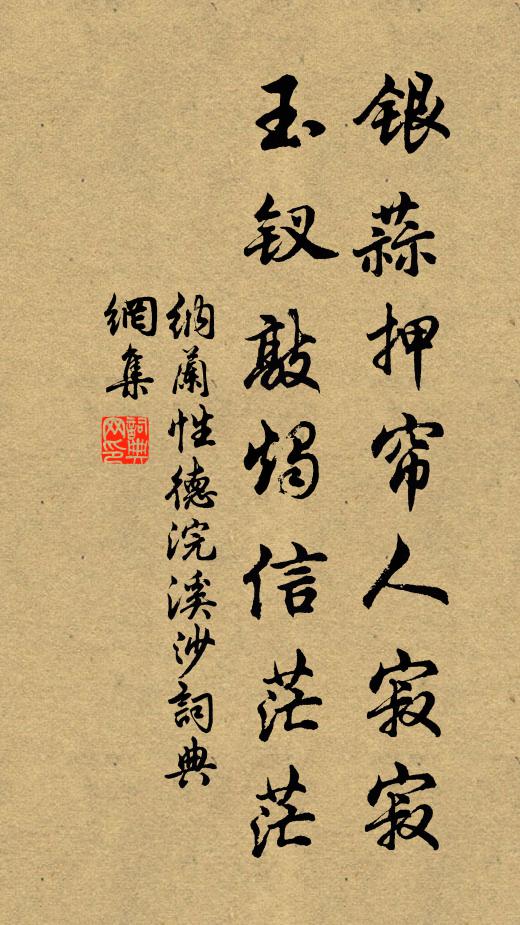 银蒜押帘人寂寂
玉钗敲烛信茫茫
納蘭性德浣溪沙詞典
網集
詞典
网印